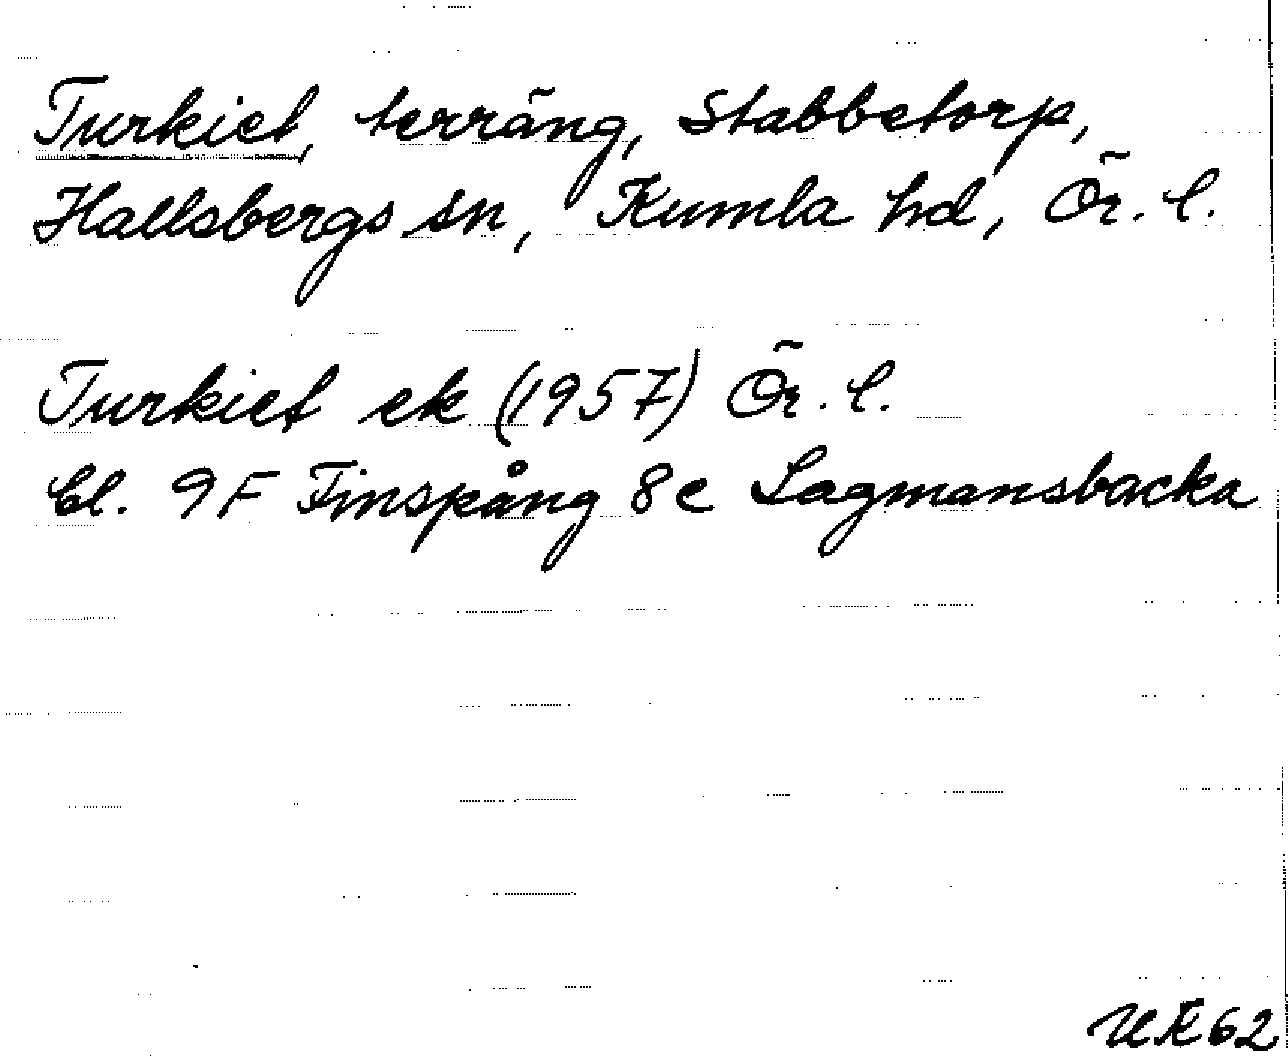 Turkiet, terräng, Stabbetorp,
Hallsbergs sn, Kumla hd, Ör. l.
Turkiet ek (1957) Ör. l.
bl. 9F Finspång 8c Lagmansbacka
UK62